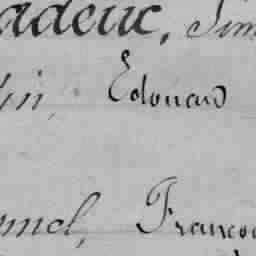 adeuc, Sim
lin, Edouard
mel, Franço